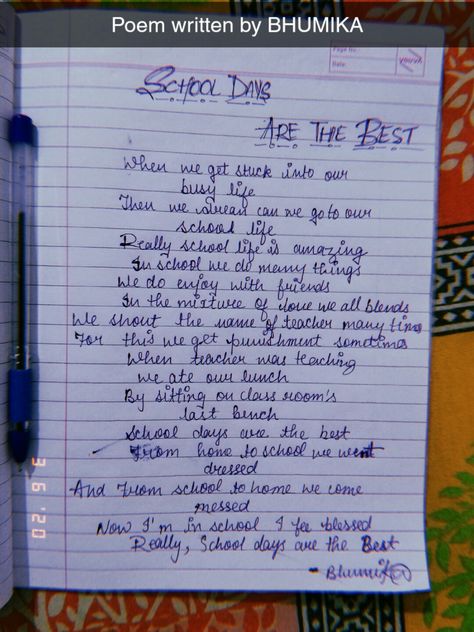 Poem written by BHUMIKA
Page No.
Date:
YOUVA
SCHOOL DAYS
ARE THE BEST
When we get stuck into our
busy life
Then we dream can we go to our
school life
Really school life is amazing
In school we do memy things
We do enjoy with friends
In the mixture of love we all blends
We shout the name of teacher many time
For this we get punishment sometimes
When teacher was teaching
we ate our lunch
By sitting on class room's
last bench
School days are the best
From home to school we went
dressed
And from school to home we come
messed
Now I'm in school I fee blessed
Really, School days are the Best
- Bhumika